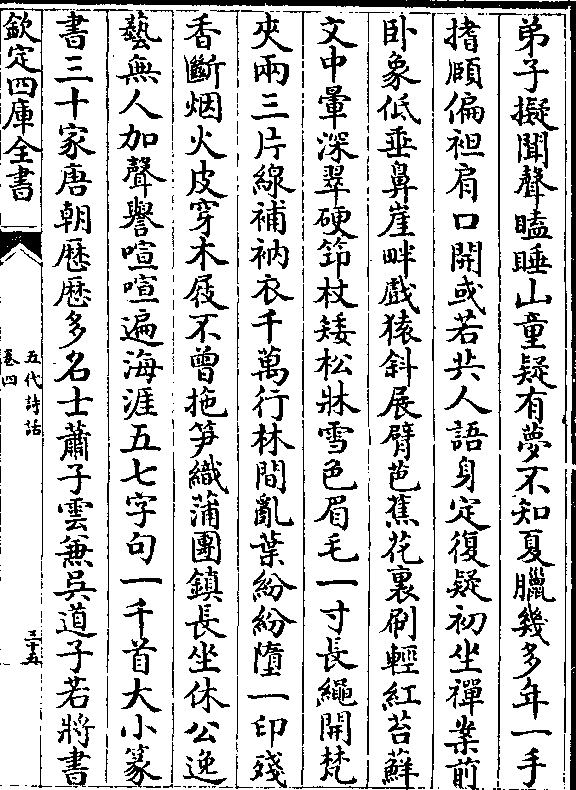 弟子擬聞聲瞌睡山童疑有夢不知夏臘幾多年一手
搘頤偏袒肩口開或若共人語身定復疑初坐禪業前
卧象低垂鼻崖畔戲猿斜展臂芭蕉花裏刷輕紅苔蘚
文中暈深翠硬筇杖矮松牀雪色眉毛一寸長繩開梵
夾兩三片線補衲衣千萬行林間亂葉紛紛墮一印殘
香斷烟火皮穿木屐不曾拖笋織蒲團鎮長坐休公逸
藝無人加聲譽喧喧遍海涯五七字句一千首大小篆
書三十家唐朝歷歷多名士蕭子雲兼吳道子若將書
欽定四庫全書
五代詩話
卷四
三十五